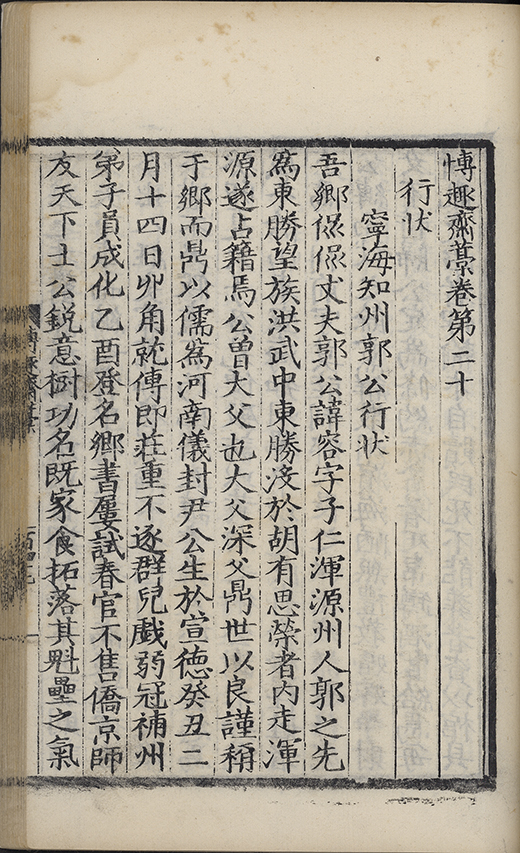 博趣齋藁卷第二十
行狀
寧海知州郭公行狀
吾鄉倜倜丈夫郭公諱容字子仁渾源州人郭之先
爲東勝望族洪武中東勝沒於胡有思榮者內走渾
源遂占籍焉公曾大父也大父深父鼎世以良謹稱
于鄉而鼎以儒爲河南儀封尹公生於宣德癸丑二
月十四日丱角就傅即莊重不逐群兒戲弱冠補州
弟子員成化乙酉登名鄉書屢試春官不售僑京師
友天下士公銳意樹功名既家食拓落其魁壘之氣